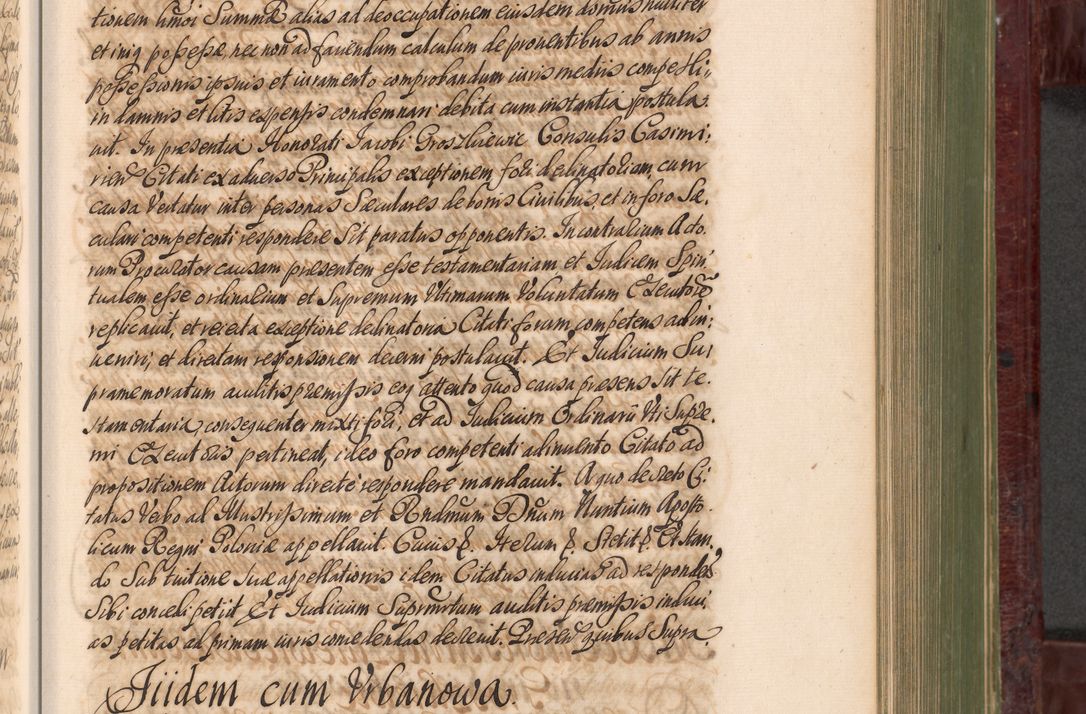 tionem hmoi Summæ alias ad deoccupationem eiusdem domus nulliter
et iniq possessæ, nec non ad faciendum calculum de proventibus ab annis
possessionis ipsius et iuramento comprobandum iuris mediis compelli,
in damnis et litis expensis condemnari debita cum instantia postula
uit. In præsentia Honorati Jacobi Groszkiewic Consulis Casimi,
rien Citati ex adverso Principalis exceptionem fori declinatoriam, cum
causa Vertatur inter personas Sæculares de bonis Civilibus, et in foro Sæ,
culari competenti respondere Sit paratus opponentis. In contrarium Acto,
rum Procurator causam præsentem esse testamentariam et Judicem Spiri,
tualem esse ordinarium et Supremum Vltimarum Voluntatum Execútorē
replicauit, et reiecta exceptione declinatoria Citati forum competens adin,
veniri, et directam responsionem decerni postulauit. Et Judicium Su,
pramemoratum auditis præmissis eoq attento quod causa præsens Sit te,
stamentaria, consequenter mixti fori, et ad Judicium Ordinarij Vti Supre,
mi Executoris pertineat, ideo foro competenti adinvento Citato ad
propositionem Actorum directe respondere mandauit. A quo decreto Ci,
tatus Verbo ad Illustrissimum et Rndmum Dnum Nuntium Aposto,
licum Regni Poloniæ appellauit. Cuius &. Iterum &. Stetit &. Et stan,
do Sub tuitione Suæ appellationis idem Citatus inducias ad respondēd
Sibi concedi petijt. Et Judicium Suprascriptum auditis præmissis induci,
as petitas ad primam iuris concedendas decreuit. Præsen quibus Supra.
Iiidem cum Vrbanowa.